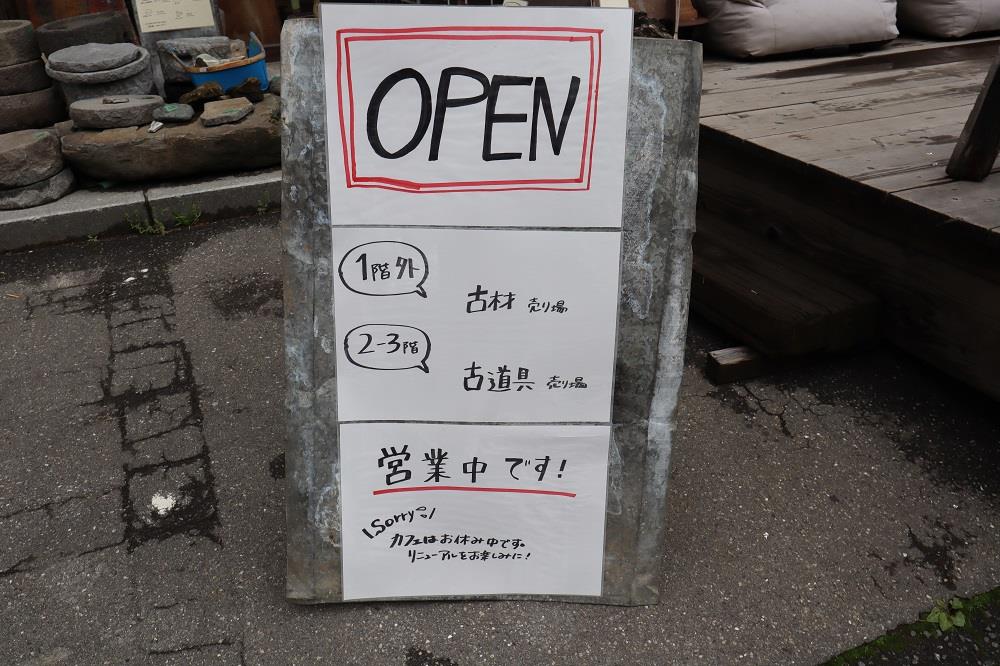 OPEN
1階外
古材 売り場
2-3階
古道具 売り場
営業中です!
\Sorry/
カフェはお休み中です。
リニューアルをお楽しみに!